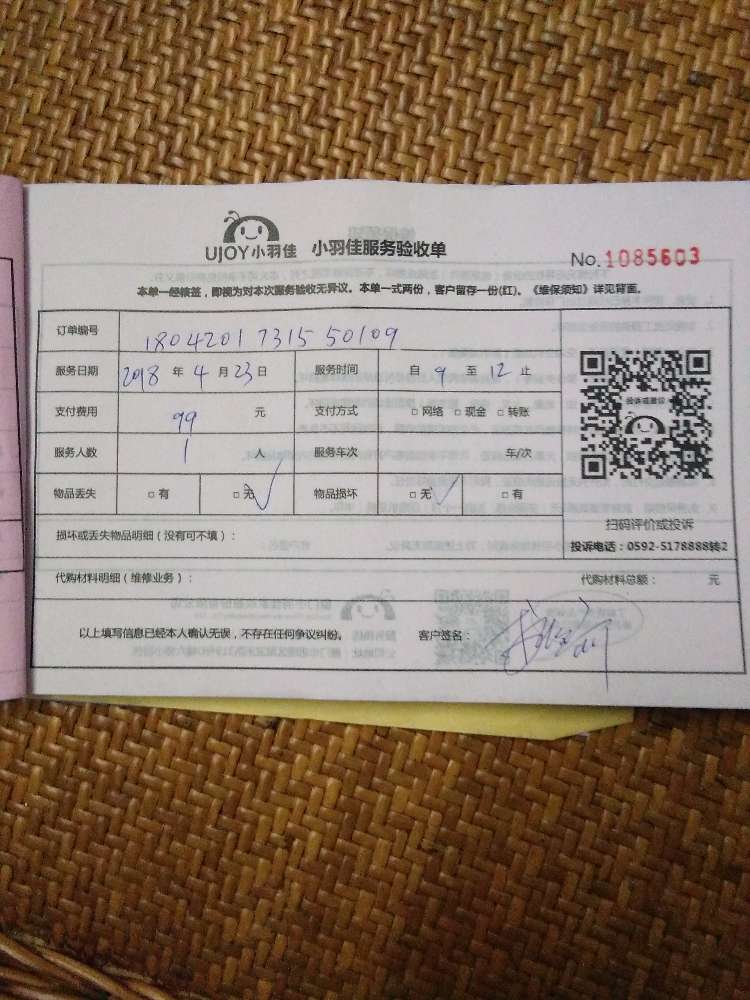 UJOY小羽佳 小羽佳服务验收单
No.1085603
本单一经核签，即视为对本次服务验收无异议。本单一式两份，客户留存一份(红)。《维保须知》详见背面。
订单编号 180420173155 0109
服务日期 2018 年 4 月 23 日 服务时间 自 9 至 12 止
支付费用 99 元 支付方式 □ 网络 □ 现金 □ 转账
投诉或建议
服务人数 1 人 服务车次 车/次
物品丢失 □ 有 □ 无 √ 物品损坏 □ 无 √ □ 有
扫码评价或投诉
损坏或丢失物品明细（没有可不填）：
投诉电话：0592-5178888转2
代购材料明细（维修业务）： 代购材料总额： 元
以上填写信息已经本人确认无误，不存在任何争议纠纷。 客户签名：